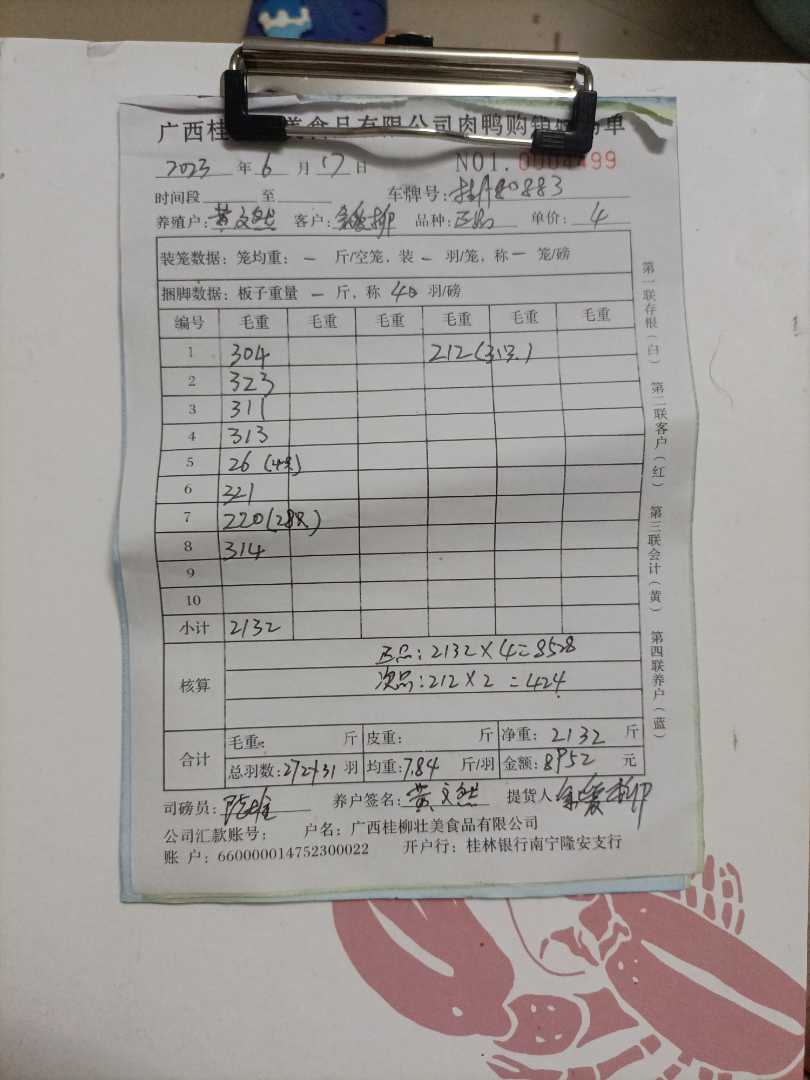 广西桂 美食品有限公司肉鸭购销 单
2023 年 6 月 17 日 NO1. 0004499
时间段 至 车牌号: 80883
养殖户: 黄文然 客户: 柳 品种: 单价: 4
装笼数据: 笼均重: 一 斤/空笼, 装 一 羽/笼, 称 一 笼/磅
捆脚数据: 板子重量 一 斤, 称 40 羽/磅
编号 毛重 毛重 毛重 毛重 毛重 毛重
1 304 212(31只)
2 323
3 311
4 313
5 26 (4只)
6 321
7 220(28只)
8 314
9
10
小计 2132
核算
正品: 2132×4=8528
次品: 212×2=424
合计
毛重: 斤 皮重: 斤 净重: 2132 斤
总羽数: 272+31 羽 均重: 7.84 斤/羽 金额: 8952 元
司磅员: 养户签名: 黄文然 提货人 柳
公司汇款账号: 户名: 广西桂柳壮美食品有限公司
账 户: 660000014752300022 开户行: 桂林银行南宁隆安支行
第一联存根(白) 第二联客户(红) 第三联会计(黄) 第四联养户(蓝)